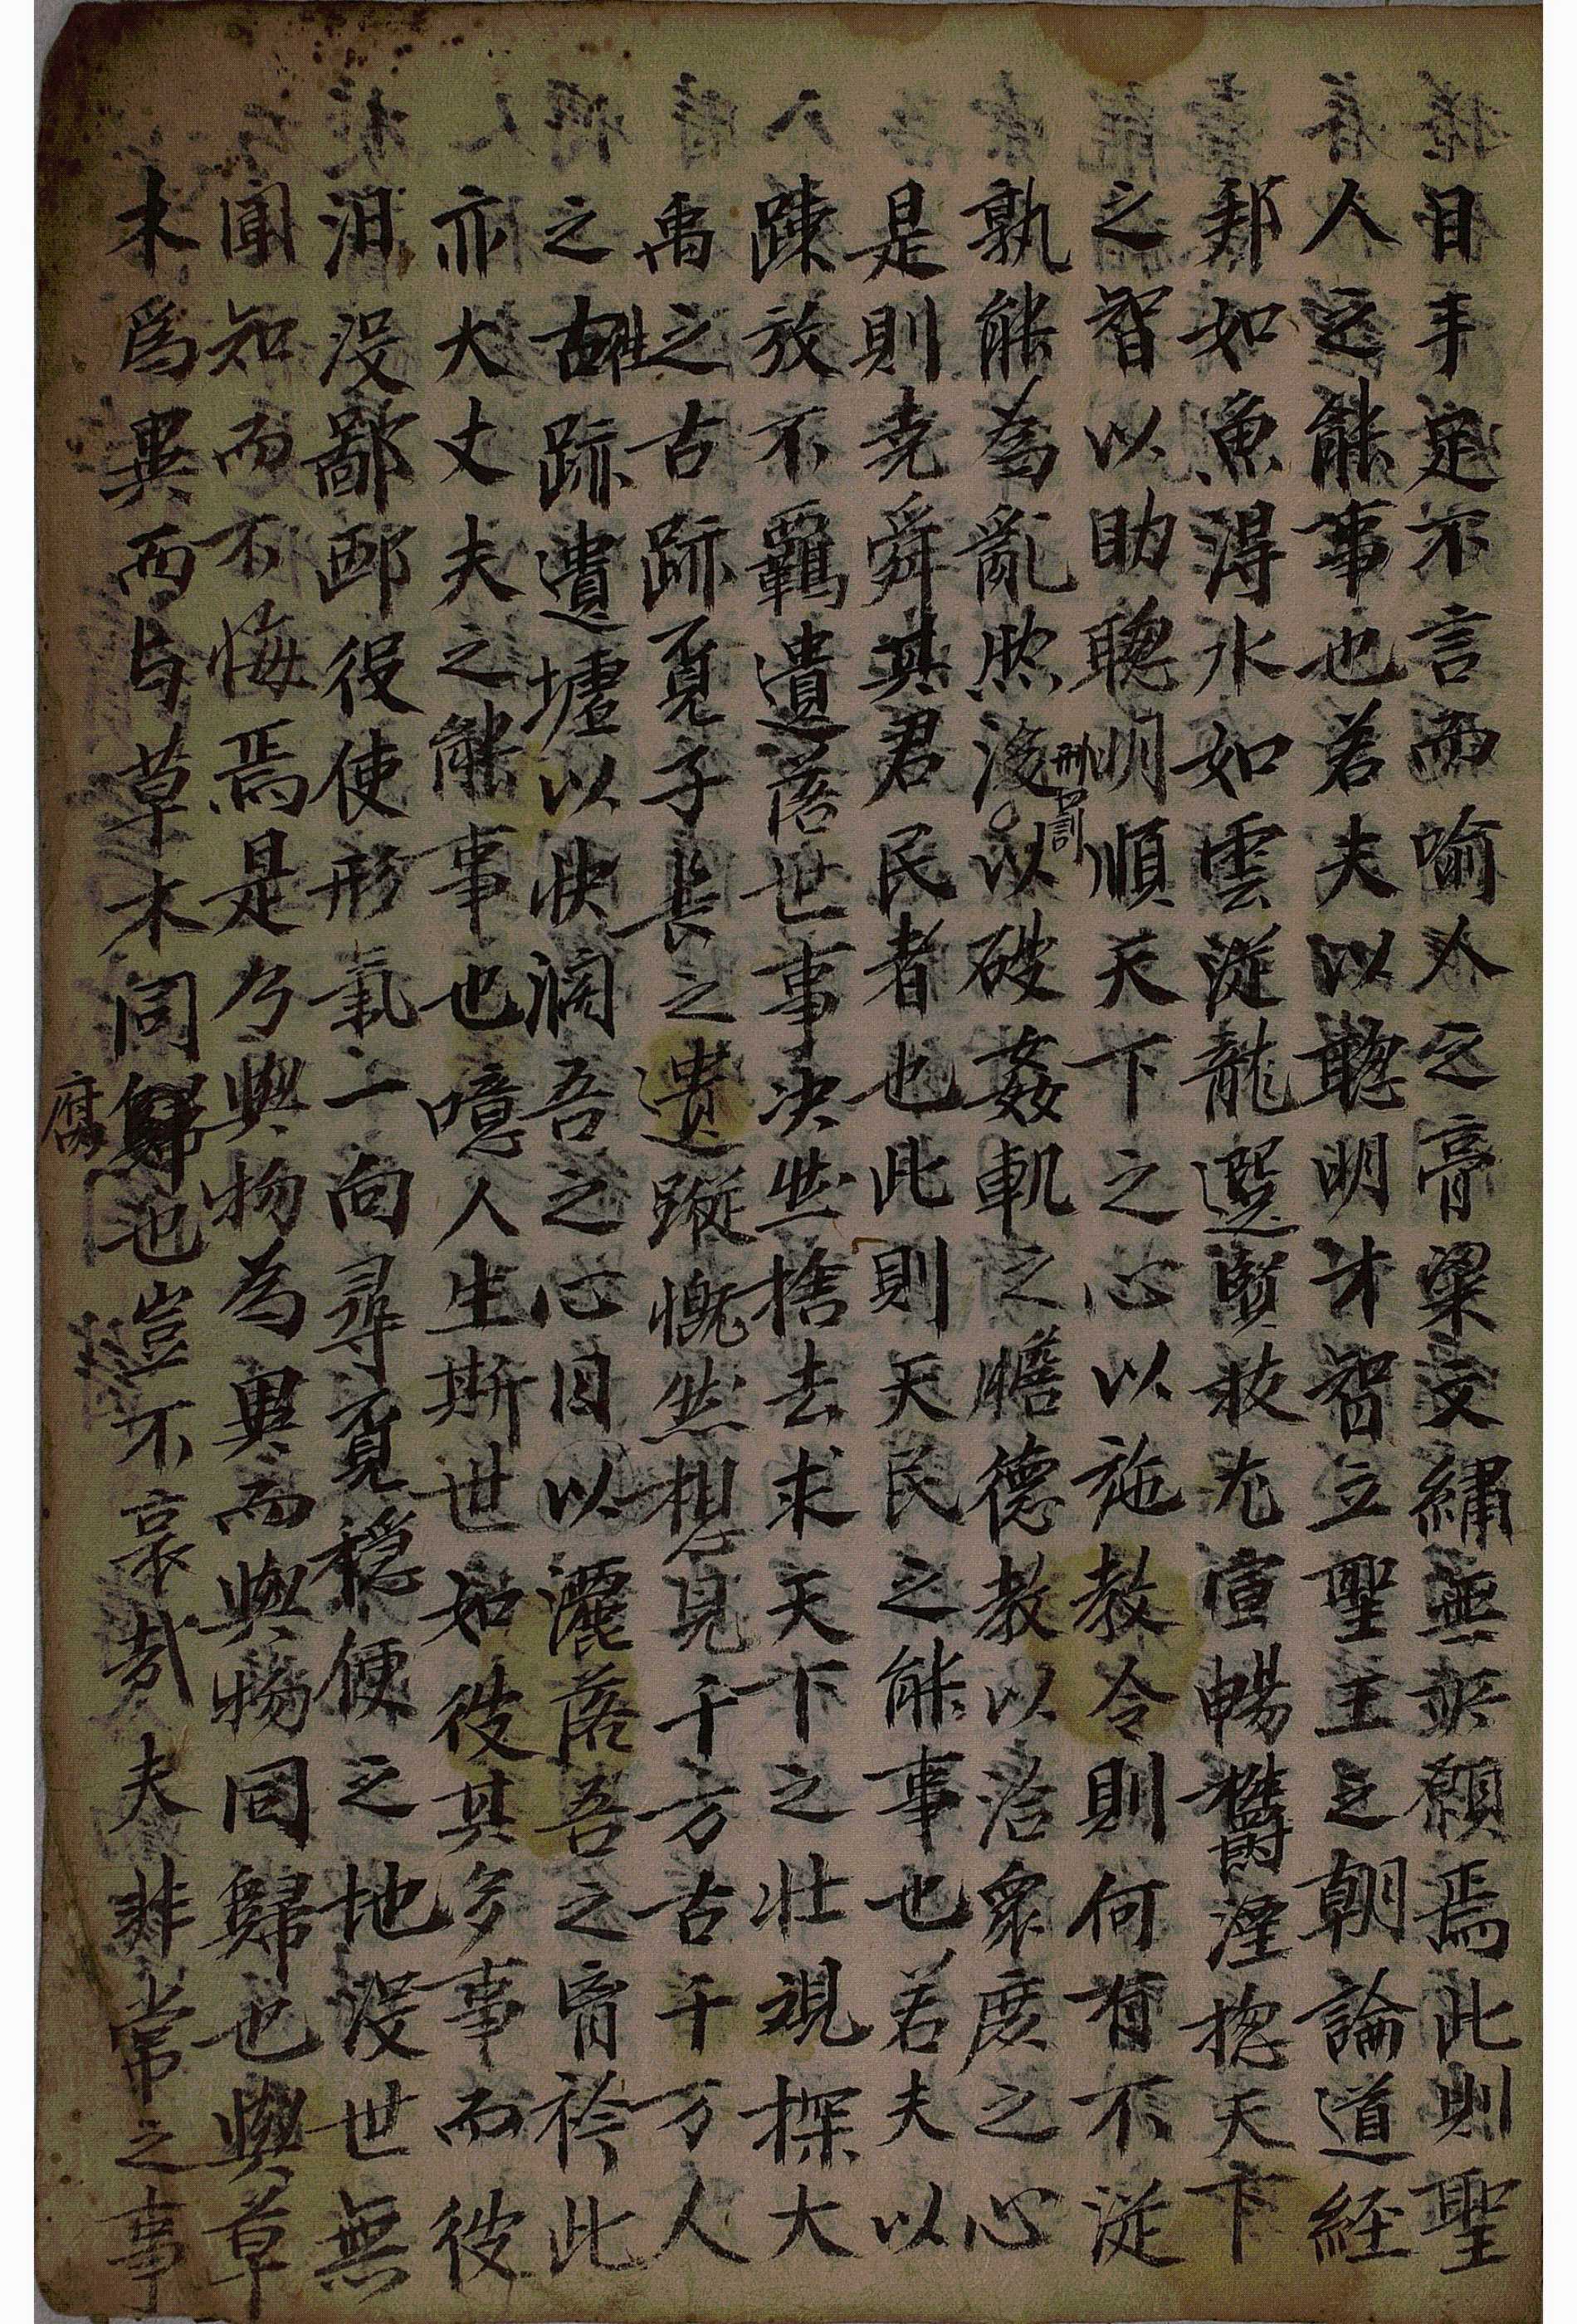 目手足不言而喻人之膏粱文繡無求願焉此則聖
人之能事也若夫以聰明才智立聖主之朝論道経
邦如魚得水如雲從龍選賢救尤宣暢欝湮摠天下
之智以助聰明順天下之心以施教令則何有不從
孰能為亂然後刑罰以破姦軌之膽德教以洽衆庶之心
是則堯舜其君民者也此則天民之能事也若夫以
踈放不羈遺落世事决然捨去求天下之壯視探大
禹之古跡覓子長之遺蹤慨然想見千万古千万人
之古跡遺墟以快濶吾之心目以灑落吾之胷衿此
亦大丈夫之能事也噫人生斯世如彼其多事而彼
汨没鄙邨役使形氣一向尋覓穏便之地没世無
聞知而不悔焉是乃與物為異而與物同歸也與草
木為異而与草木同腐也豈不哀哉夫非常之事